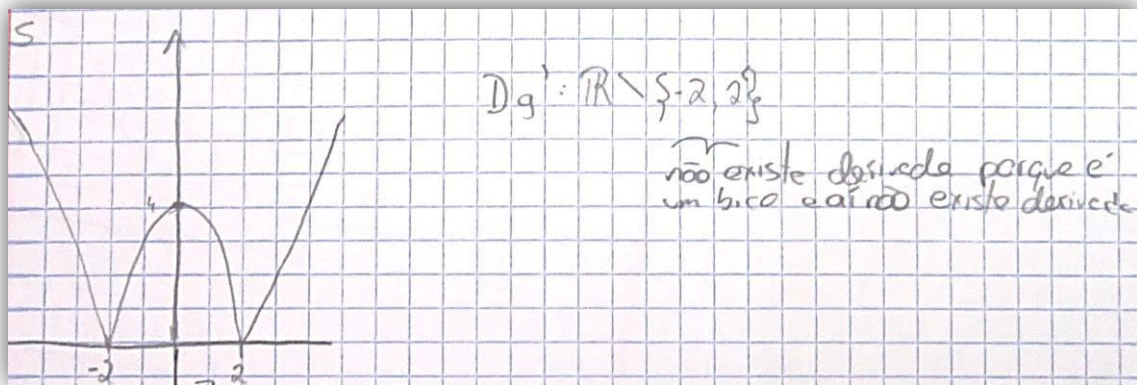 S
Dg' : ℝ \ {-2, 2}
não existe derivada porque é
um bico e aí não existe derivada
4
-2 2